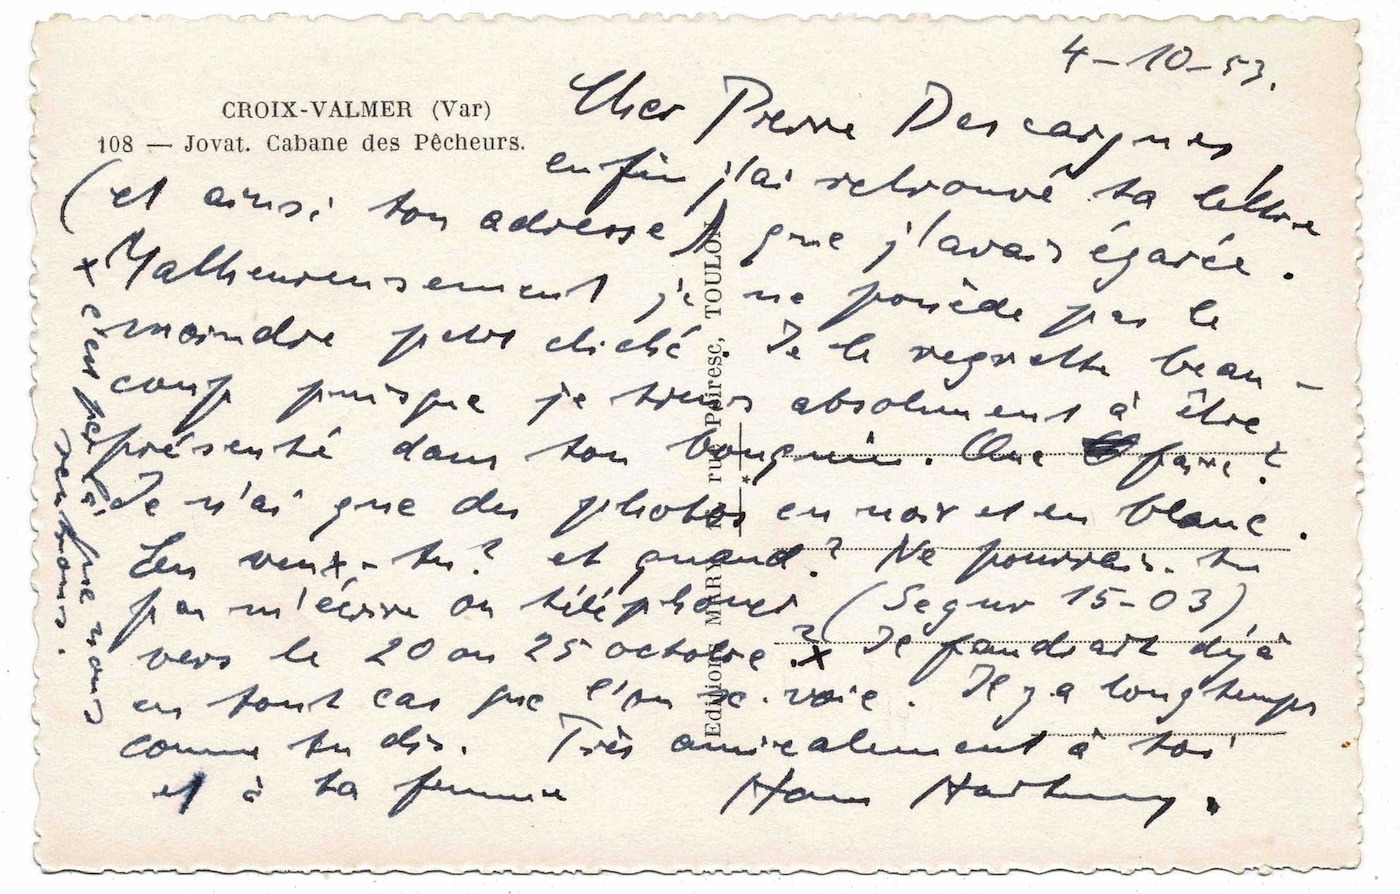 CROIX-VALMER (Var)
108 — Jovat. Cabane des Pêcheurs.
4-10-53.
Cher Pierre Descargues
enfin j'ai retrouvé ta lettre
(et ainsi ton adresse) que j'avais égarée.
Malheureusement je ne possède pas le
moindre petit cliché. Je le regrette beau-
coup puisque je tiens absolument à être
présenté dans ton bouquin. Que faire?
Je n'ai que des photos en noir et en blanc.
En veux-tu? et quand? Ne pourrais-tu
pas m'écrire ou téléphoner (Segur 15-03)
vers le 20 ou 25 octobre? x Il faudrait déjà
en tout cas que l'on se voie. Il y a longtemps
comme tu dis. Très amicalement à toi
et à ta femme Hans Hartung.
x c'est par là que nous
rentrons.
Editions MARY rue Peiresc, TOULON